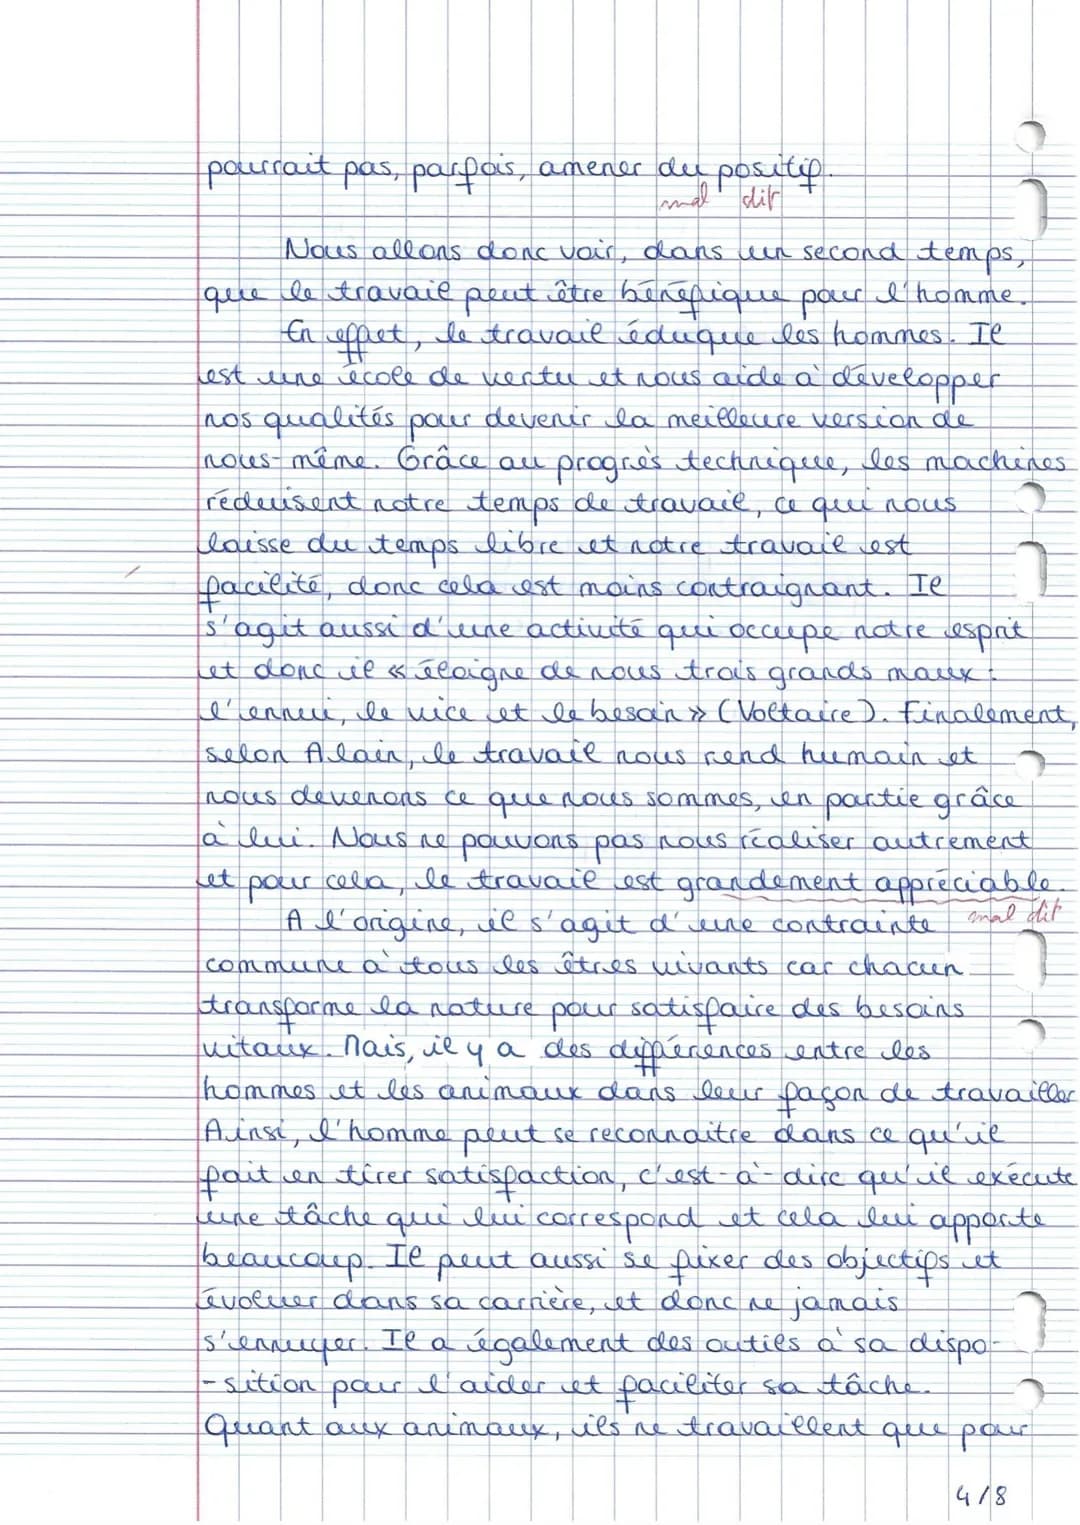 pourrait pas, parfois, amener du positif.
mal dit
Nous allons donc voir, dans un second temps,
que le travail peut être bénéfique pour l'homme.
En effet, le travail éduque les hommes. Il
est une école de vertu et nous aide à développer
nos qualités pour devenir la meilleure version de
nous-même. Grâce au progrès technique, les machines
réduisent notre temps de travail, ce qui nous
laisse du temps libre et notre travail est
facilité, donc cela est moins contraignant. Il
s'agit aussi d'une activité qui occupe notre esprit
et donc il « éloigne de nous trois grands maux :
l'ennui, le vice et le besoin » (Voltaire). Finalement,
selon Alain, le travail nous rend humain et
nous devenons ce que nous sommes, en partie grâce
à lui. Nous ne pouvons pas nous réaliser autrement
et pour cela, le travail est grandement appréciable.
mal dit
A l'origine, il s'agit d'une contrainte
commune à tous les êtres vivants car chacun
transforme la nature pour satisfaire des besoins
vitaux. Mais, il y a des différences entre les
hommes et les animaux dans leur façon de travailler
Ainsi, l'homme peut se reconnaitre dans ce qu'il
fait en tirer satisfaction, c'est-à-dire qu'il exécute
une tâche qui lui correspond et cela lui apporte
beaucoup. Il peut aussi se fixer des objectifs et
évoluer dans sa carrière, et donc ne jamais
s'ennuyer. Il a également des outils à sa dispo-
-sition pour l'aider et faciliter sa tâche.
Quant aux animaux, ils ne travaillent que pour
4/8